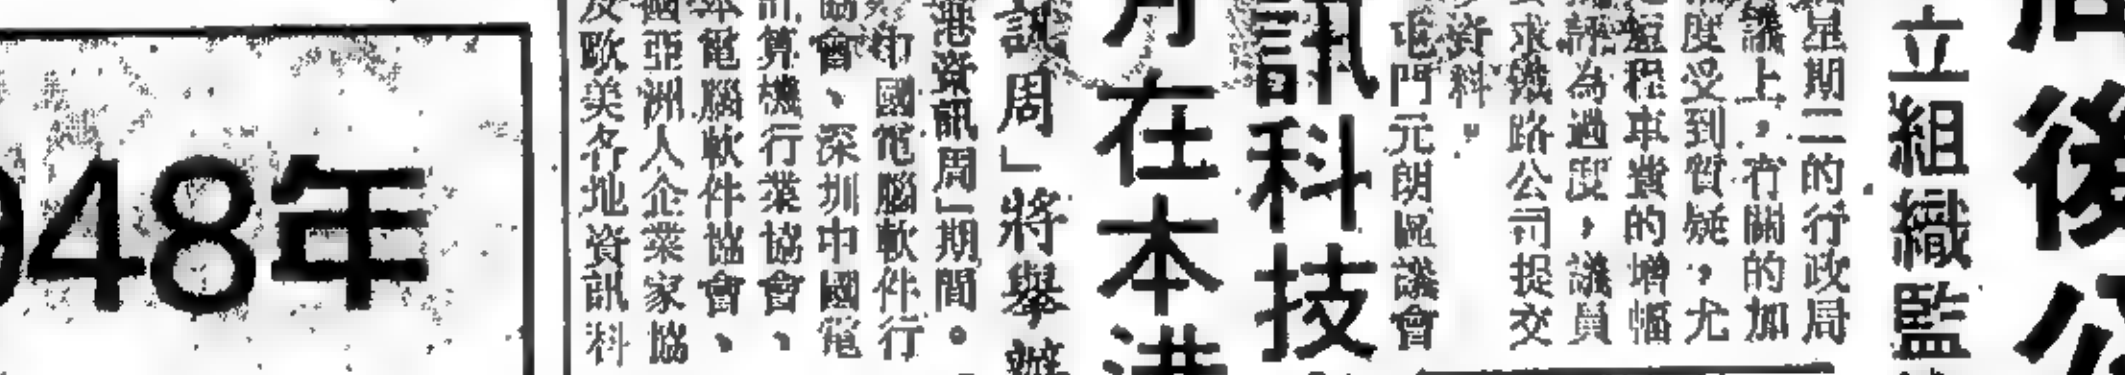 後
立組織監
星期二的行政局
議上，有關的加
度受到質疑，尤
短程車費的增幅
評為過度，議員
求鐵路公司提交
資料。
屯門元朗區議會
訊科技
月在本港
訊周」將舉辦
港資訊周」期間。
中國電腦軟件行
協會、深圳中國電
計算機行業協會、
電腦軟件協會、
國亞洲人企業家協
及歐美各地資訊科
948年